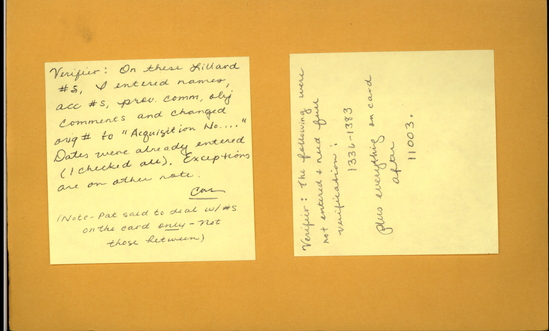 Verifier: On these Lillard
#s, I entered names,
acc #s, prov. comm, obj
comments and changed
orig # to "Acquisition No...."
Dates were already entered
(I checked all). Exceptions
are on other note.
(Note - Pat said to deal w/ #s
on the card only - not
those between)
Verifier: The following were
not entered & need full
verification:
1336-1383
plus everything on card
after
11003.